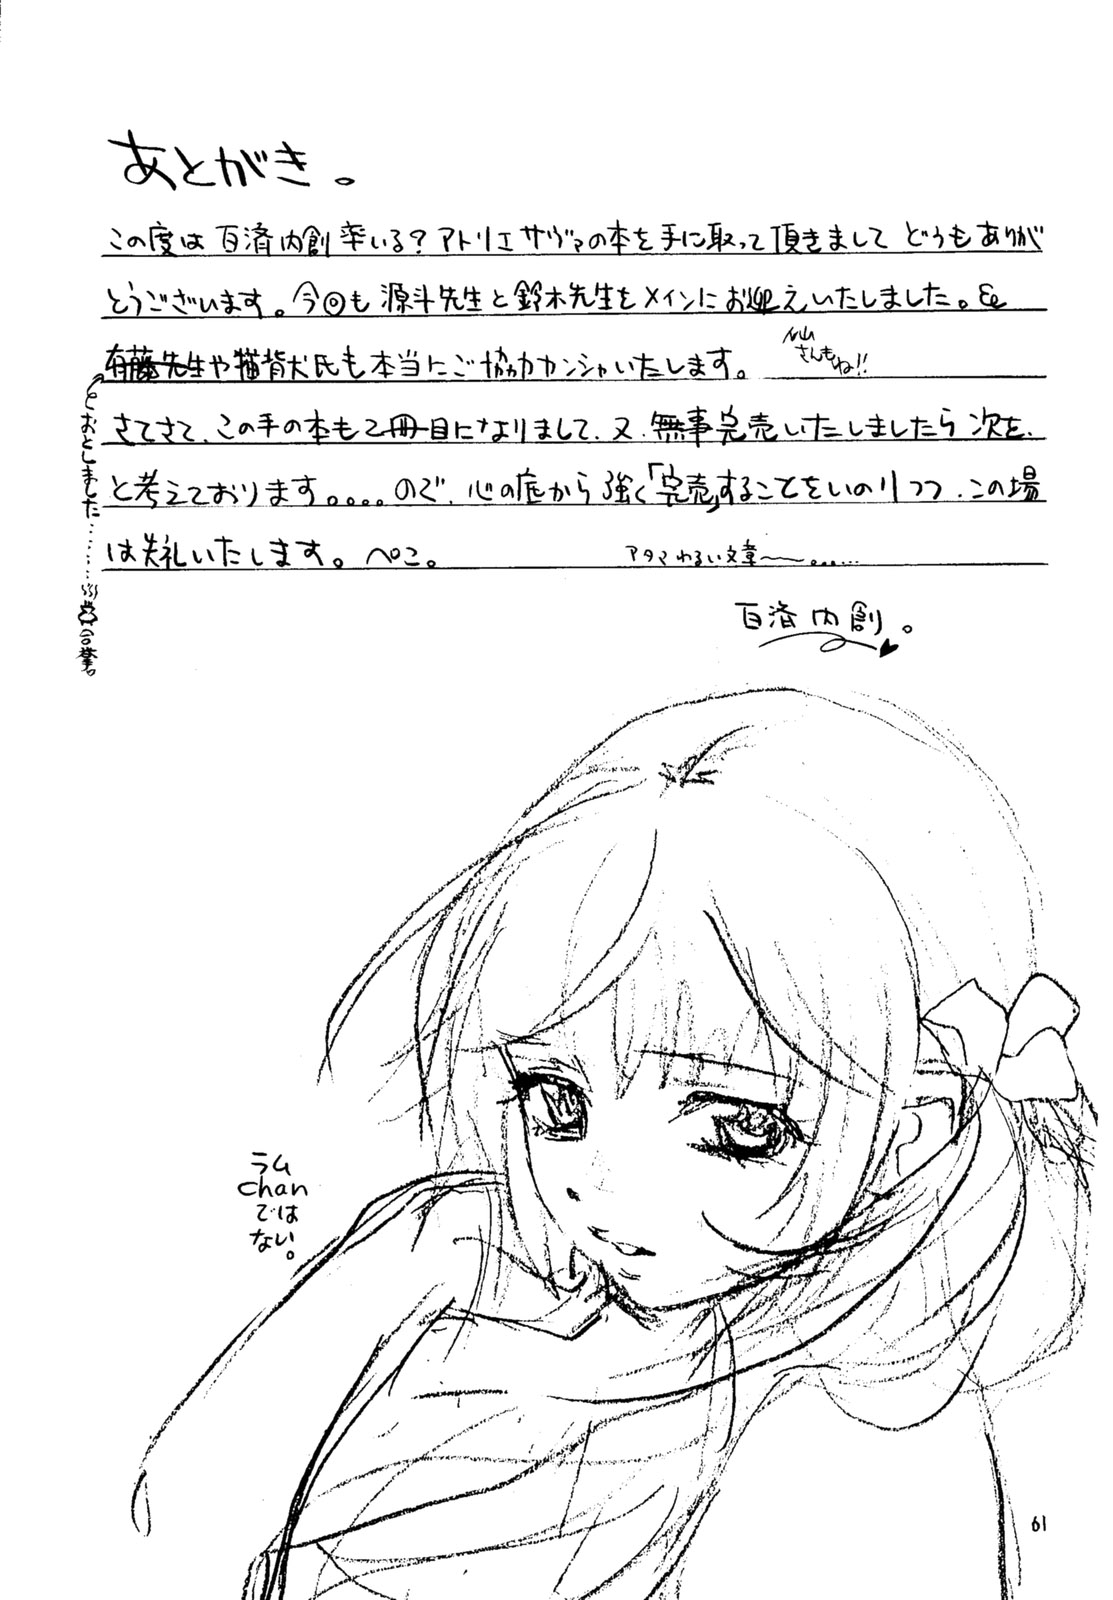 あとがき。
この度は百済内創率いる?アトリエサヴァの本を手に取って頂きまして どうもありが
とうございます。今回も源斗先生と鈴木先生をメインにお迎えいたしました。&
有藤先生や猫背犬氏も本当にご協力カンシャいたします。
さんもね!!
さてさて、この手の本も2冊目になりまして、又、無事完売いたしましたら次を、
と考えております。。。。ので、心の底から強く「完売」することをいのりつつ、この場
は失礼いたします。ペこ。
アタマわるい文章〜〜。。……
おとしました……
合掌。
百済内創。
ラム
chan
では
ない。
61